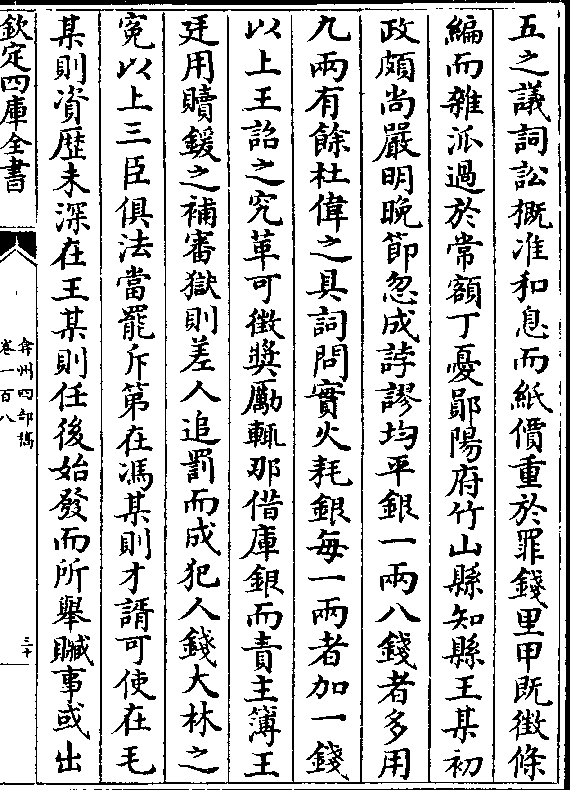 五之議詞訟概准和息而紙價重於罪錢里甲既徵條
編而雜派過於常額丁憂鄖陽府竹山縣知縣王某初
政頗尚嚴明晚節忽成誖謬均平銀一兩八錢者多用
九兩有餘杜偉之具詞問實火耗銀每一兩者加一錢
以上王詔之究革可徵奬勵輒那借庫銀而責主簿王
廷用贖鍰之補審獄則差人追罰而成犯人錢大林之
寃以上三臣俱法當罷斥第在馮某則才諝可使在毛
某則資歷未深在王某則任後始發而所舉贓事或出
欽定四庫全書
弇州四部稿
卷一百八
三十